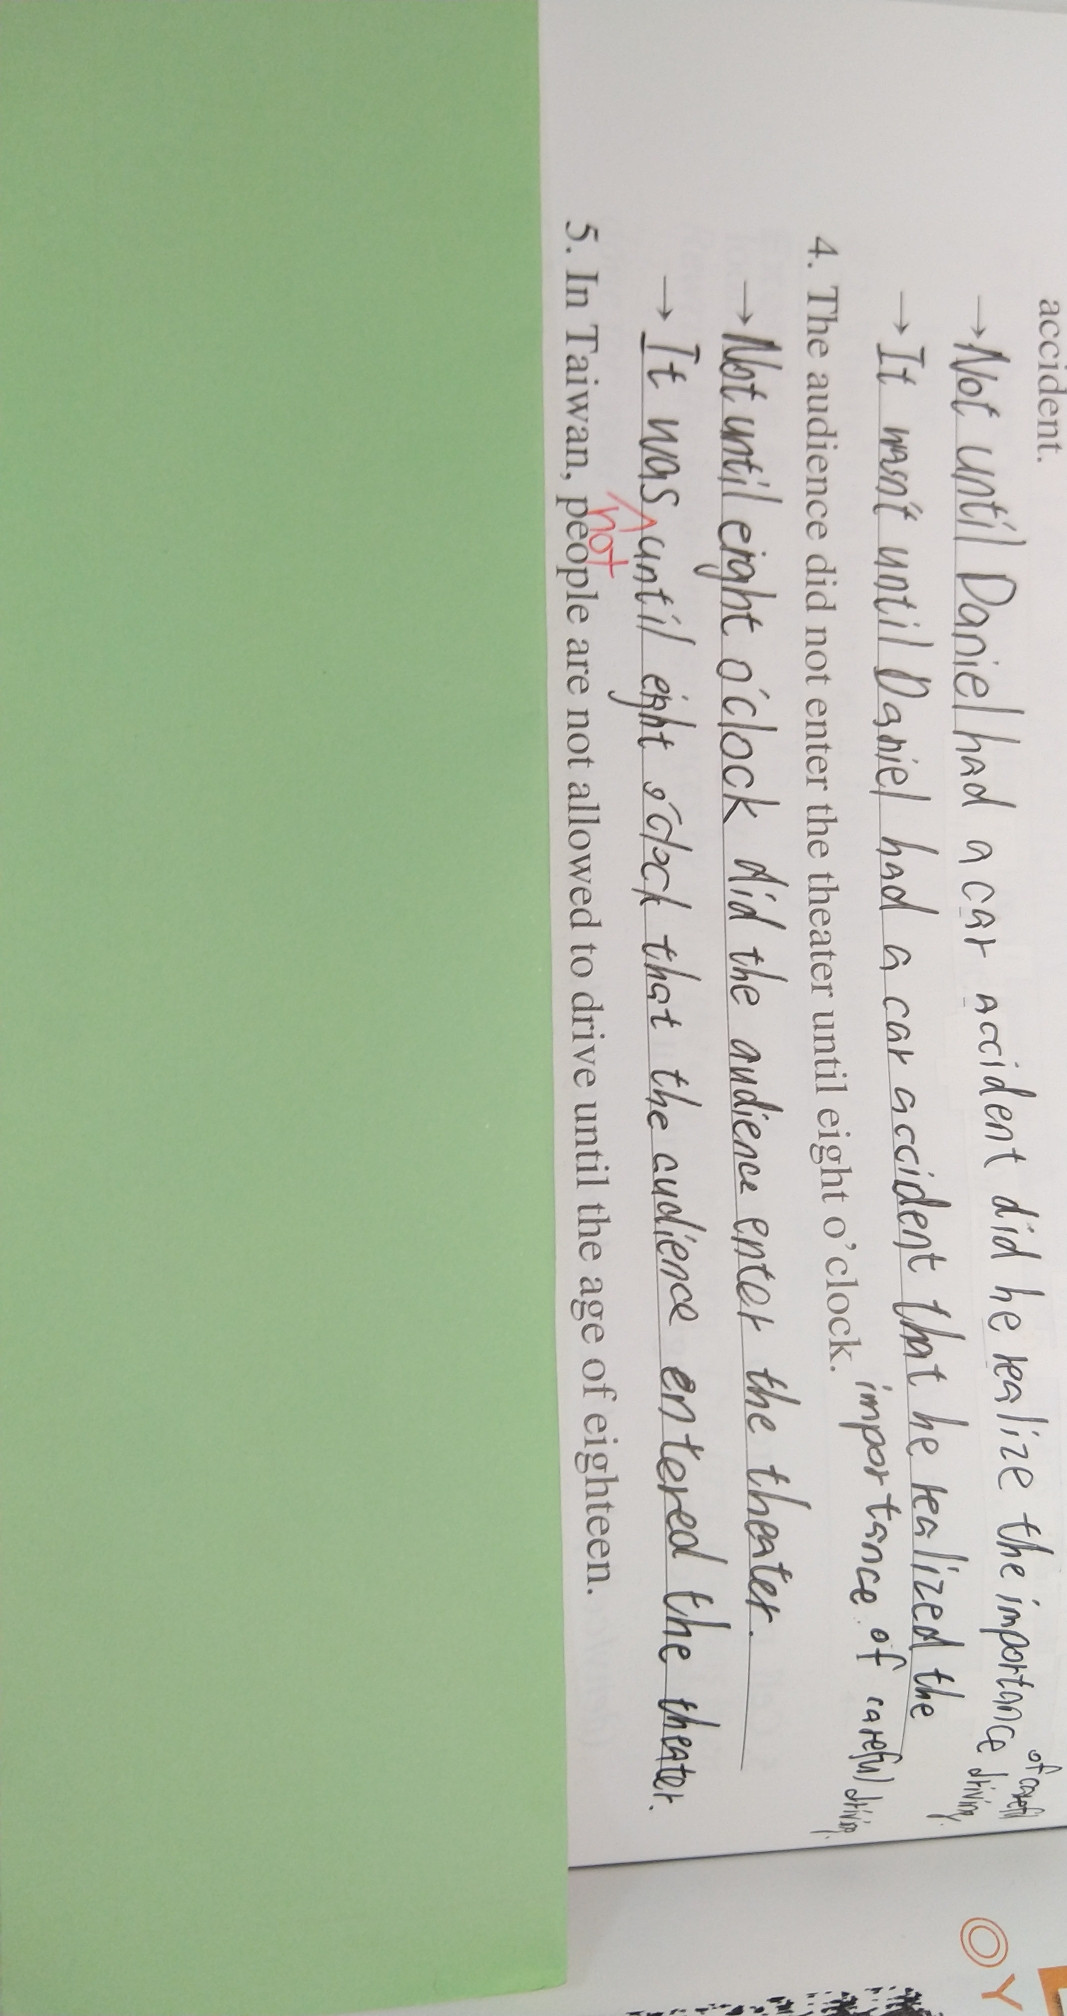 accident.
→ Not until Daniel had a car accident did he realize the importance of careful driving.
→ It wasn't until Daniel had a car accident that he realized the
importance of careful driving.
4. The audience did not enter the theater until eight o'clock.
→ Not until eight o'clock did the audience enter the theater.
→ It was not until eight o'clock that the audience entered the theater.
5. In Taiwan, people are not allowed to drive until the age of eighteen.
Y